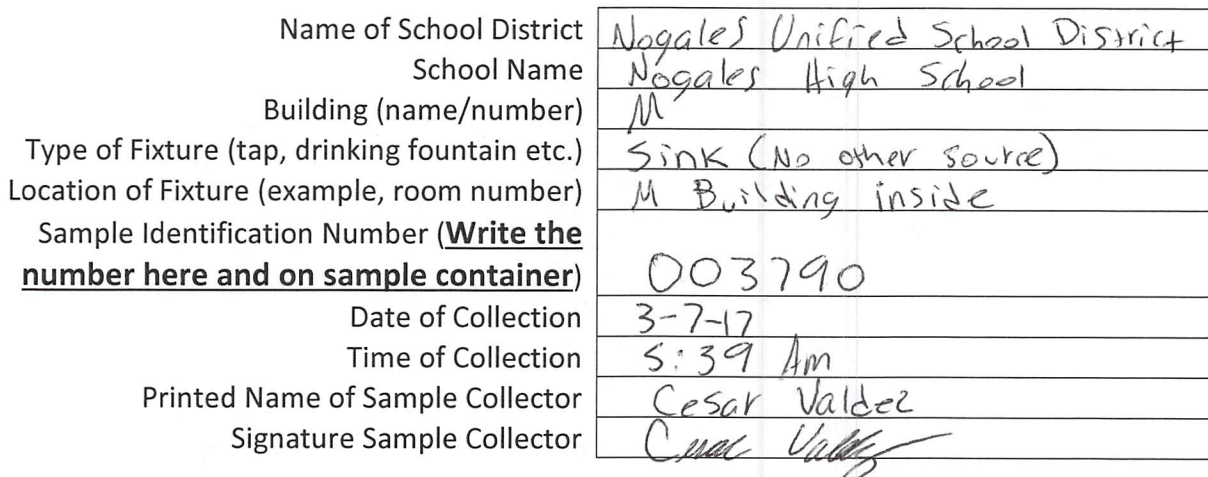 Name of School District Nogales Unified School District
School Name Nogales High School
Building (name/number) M
Type of Fixture (tap, drinking fountain etc.) Sink (No other source)
Location of Fixture (example, room number) M Building inside
Sample Identification Number (Write the
number here and on sample container) 003790
Date of Collection 3-7-17
Time of Collection 5:39 Am
Printed Name of Sample Collector Cesar Valdez
Signature Sample Collector Cesar Valdez